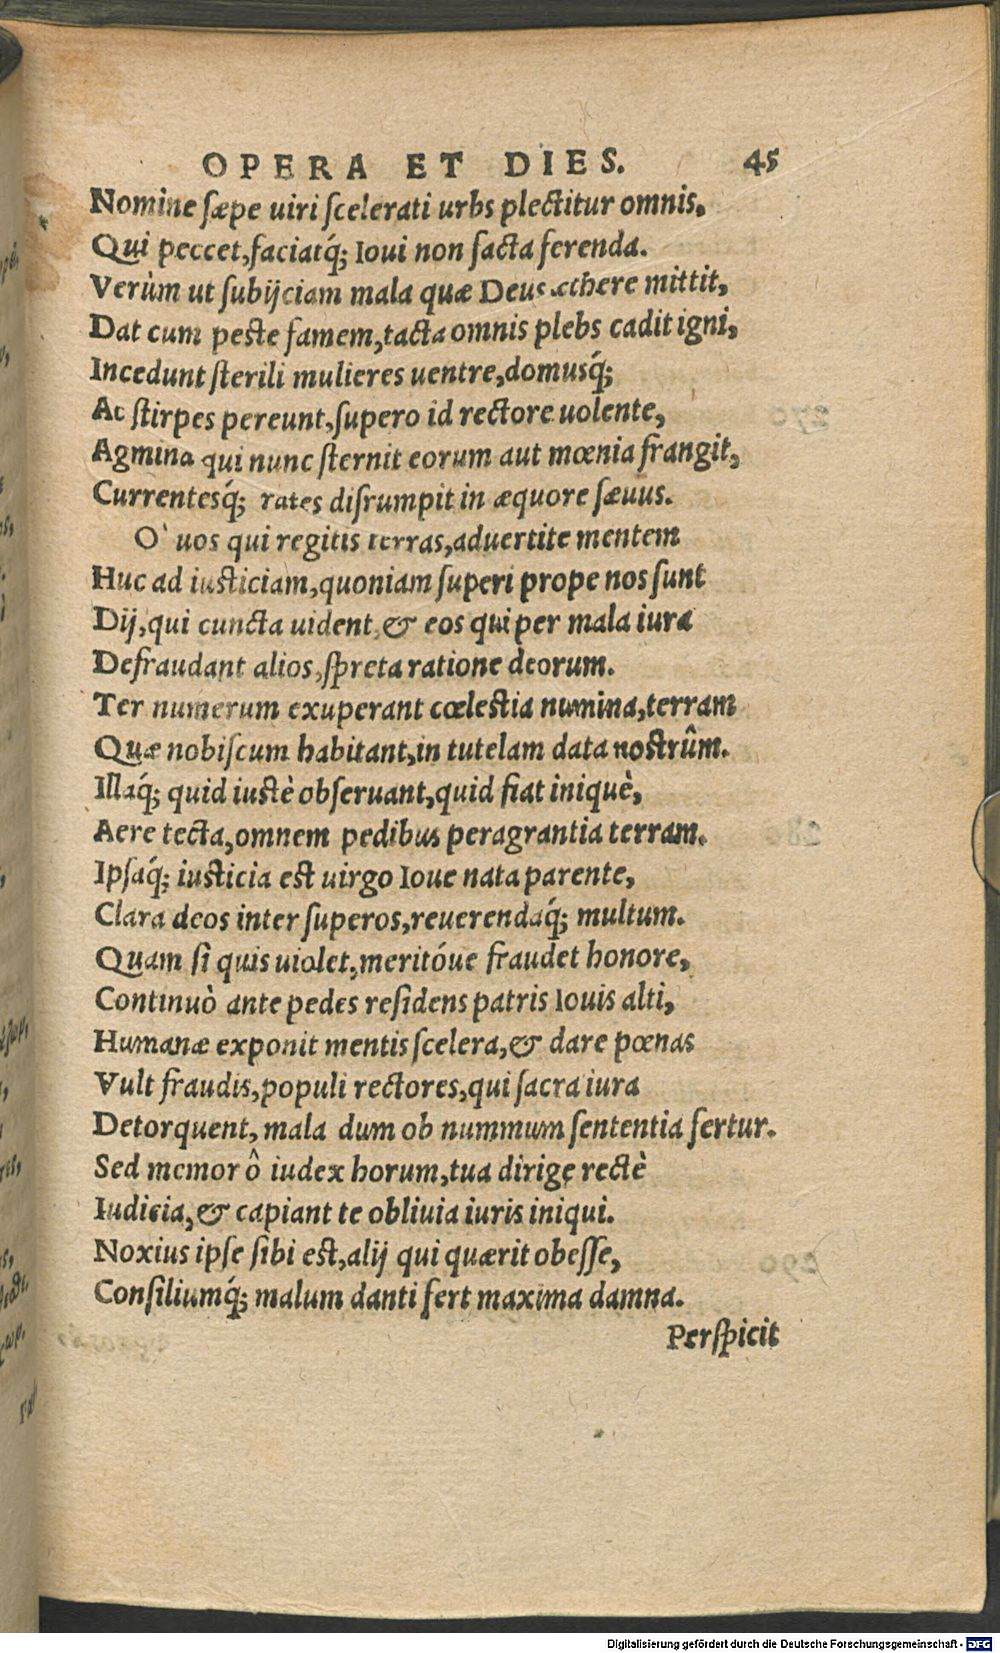 OPERA ET DIES. 45
Nomine sæpe uiri scelerati urbs plectitur omnis,
Qui peccet, faciatq́; Ioui non facta ferenda.
Verùm ut subijciam mala quæ Deus æthere mittit,
Dat cum peste famem, tacta omnis plebs cadit igni,
Incedunt sterili mulieres uentre, domusq́;
Ac stirpes pereunt, supero id rectore uolente,
Agmina qui nunc sternit eorum aut mœnia frangit,
Currentesq́; rates disrumpit in æquore sæuus.
O` uos qui regitis terras, aduertite mentem
Huc ad iusticiam, quoniam superi prope nos sunt
Dij, qui cuncta uident, & eos qui per mala iura
Defraudant alios, spreta ratione deorum.
Ter numerum exuperant cœlestia numina, terram
Quæ nobiscum habitant, in tutelam data nostrûm.
Illaq́; quid iustè obseruant, quid fiat iniquè,
Aere tecta, omnem pedibus peragrantia terram.
Ipsaq́; iusticia est uirgo Ioue nata parente,
Clara deos inter superos, reuerendaq́; multum.
Quam si quis uiolet, meritóue fraudet honore,
Continuò ante pedes residens patris Iouis alti,
Humanæ exponit mentis scelera, & dare pœnas
Vult fraudis, populi rectores, qui sacra iura
Detorquent, mala dum ob nummum sententia fertur.
Sed memor ô iudex horum, tua dirige rectè
Iudicia, & capiant te obliuia iuris iniqui.
Noxius ipse sibi est, alij qui quærit obesse,
Consiliumq́; malum danti fert maxima damna.
Perspicit
Digitalisierung gefördert durch die Deutsche Forschungsgemeinschaft - DFG